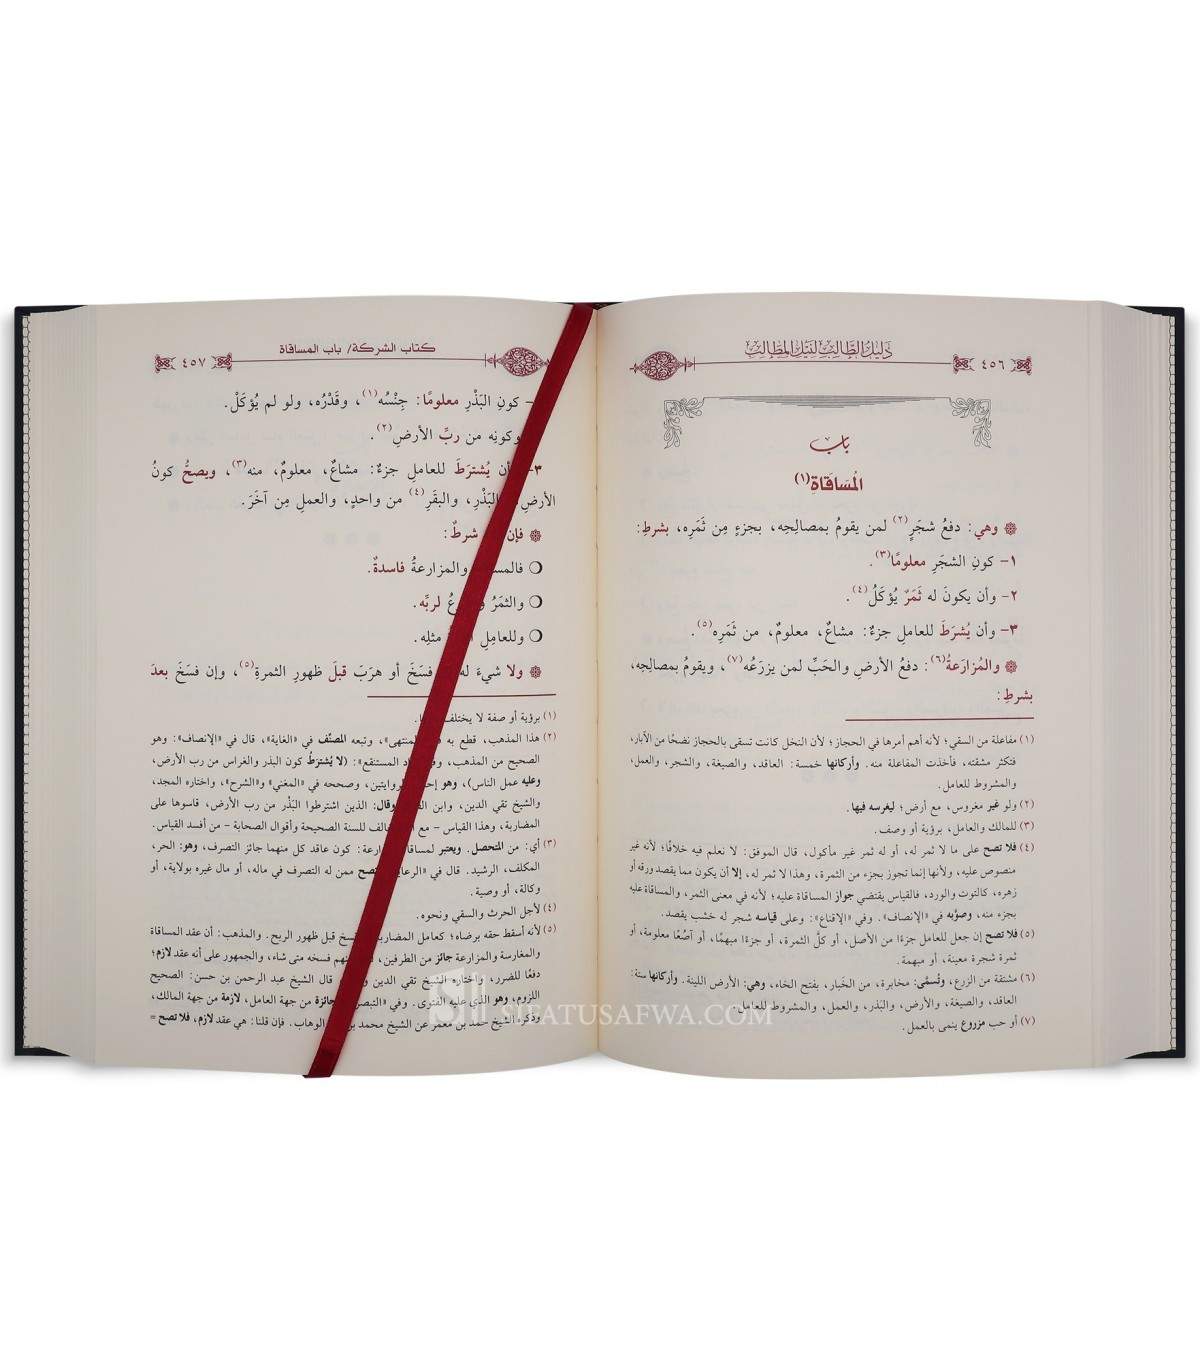 ٤٥٦
دَلِيْلُ الطَّالِبْ لِنَيْلِ المَطَالِبْ
باب
المُسَاقَاةِ(١)
وهي: دفعُ شجَرٍ(٢) لمن يقومُ بمصالِحِه، بجزءٍ مِن ثَمَرِه، بشرطِ:
١- كونِ الشجَرِ معلومًا(٣).
٢- وأن يكونَ له ثَمَرٌ يُؤكَلُ(٤).
٣- وأن يُشرَطَ للعاملِ جزءٌ: مشاعٌ، معلومٌ، من ثَمَرِه(٥).
والمُزارَعةُ(٦): دفعُ الأرضِ والحَبِّ لمن يزرَعُه(٧)، ويقومُ بمصالِحِه،
بشرطِ:
(١) مفاعلة من السقي؛ لأنه أهم أمرها في الحجاز؛ لأن النخل كانت تسقى بالحجاز نضحًا من الآبار،
فتكثر مشقته، فأخذت المفاعلة منه. وأركانها خمسة: العاقد، والصيغة، والشجر، والعمل،
والمشروط للعامل.
(٢) ولو غير مغروس، مع أرض؛ ليغرسه فيها.
(٣) للمالك والعامل، برؤية أو وصف.
(٤) فلا تصح على ما لا ثمر له، أو له ثمر غير مأكول، قال الموفق: لا نعلم فيه خلافًا؛ لأنه غير
منصوص عليه، ولأنها إنما تجوز بجزء من الثمرة، وهذا لا ثمر له، إلا أن يكون مما يقصد ورقه أو
زهره، كالتوت والورد، فالقياس يقتضي جواز المساقاة عليه؛ لأنه في معنى الثمر، والمساقاة عليه
بجزء منه، وصوَّبه في «الإنصاف». وفي «الإقناع»: وعلى قياسه شجر له خشب يقصد.
(٥) فلا تصح إن جعل للعامل جزءًا من الأصل، أو كلَّ الثمرة، أو جزءًا مبهمًا، أو آصُعًا معلومة، أو
ثمرة شجرة معينة، أو مبهمة.
(٦) مشتقة من الزرع، وتُسمَّى: مخابرة، من الخَبار، بفتح الخاء، وهي: الأرض اللينة. وأركانها ستة:
العاقد، والصيغة، والأرض، والبَذر، والعمل، والمشروط للعامل.
(٧) أو حب مزروع ينمى بالعمل.
كتاب الشركة/ باب المساقاة
٤٥٧
- كونِ البَذْرِ معلومًا: جِنْسُه(١)، وقَدْرُه، ولو لم يُؤكَلْ.
وكونِه من ربِّ الأرضِ(٢).
٣- أن يُشترَطَ للعاملِ جزءٌ: مشاعٌ، معلومٌ، منه(٣)، ويصحُّ كونُ
الأرضِ البَذْرِ، والبقَرِ(٤) من واحدٍ، والعملِ مِن آخَرَ.
فإن شرطٌ:
والمزارعةُ فاسدةٌ.
والثمَرُ لربِّه.
وللعاملِ مثلِه.
ولا شيءَ له فسَخَ أو هرَبَ قبلَ ظهورِ الثمرةِ(٥)، وإن فسَخَ بعدَ
(١) برؤية أو صفة لا يختلف
(٢) هذا المذهب، قطع به وتبعه المصنِّف في «الغاية»، قال في «الإنصاف»: وهو
الصحيح من المذهب، المستقنع»: (لا يُشترَطُ كون البذر والغراس من رب الأرض،
وعليه عمل الناس)، وهو الروايتين، وصححه في «المغني» و«الشرح»، واختاره المجد،
والشيخ تقي الدين، وابن وقال: الذين اشترطوا البَذْر من رب الأرض، قاسوها على
المضاربة، وهذا القياس – مع للسنة الصحيحة وأقوال الصحابة – من أفسد القياس.
(٣) أي: من المتحصل. ويعتبر لمساقاة كون عاقد كل منهما جائز التصرف، وهو: الحر،
المكلف، الرشيد. قال في ممن له التصرف في ماله، أو مال غيره بولاية، أو
وكالة، أو وصية.
(٤) لأجل الحرث والسقي ونحوه.
(٥) لأنه أسقط حقه برضاه؛ كعامل قبل ظهور الربح. والمذهب: أن عقد المساقاة
والمغارسة والمزارعة جائز من الطرفين، فسخه متى شاء، والجمهور على أنه عقد لازم؛
دفعًا للضرر، واختاره الشيخ تقي الدين قال الشيخ عبد الرحمن بن حسن: الصحيح
اللزوم، وهو الذي عليه الفتوى. وفي جائزة من جهة العامل، لازمة من جهة المالك،
وذكره الشيخ حمد بن معمر عن الشيخ محمد بن الوهاب. فإن قلنا: هي عقد لازم، فلا تصح =
SIFATUSAFWA.COM